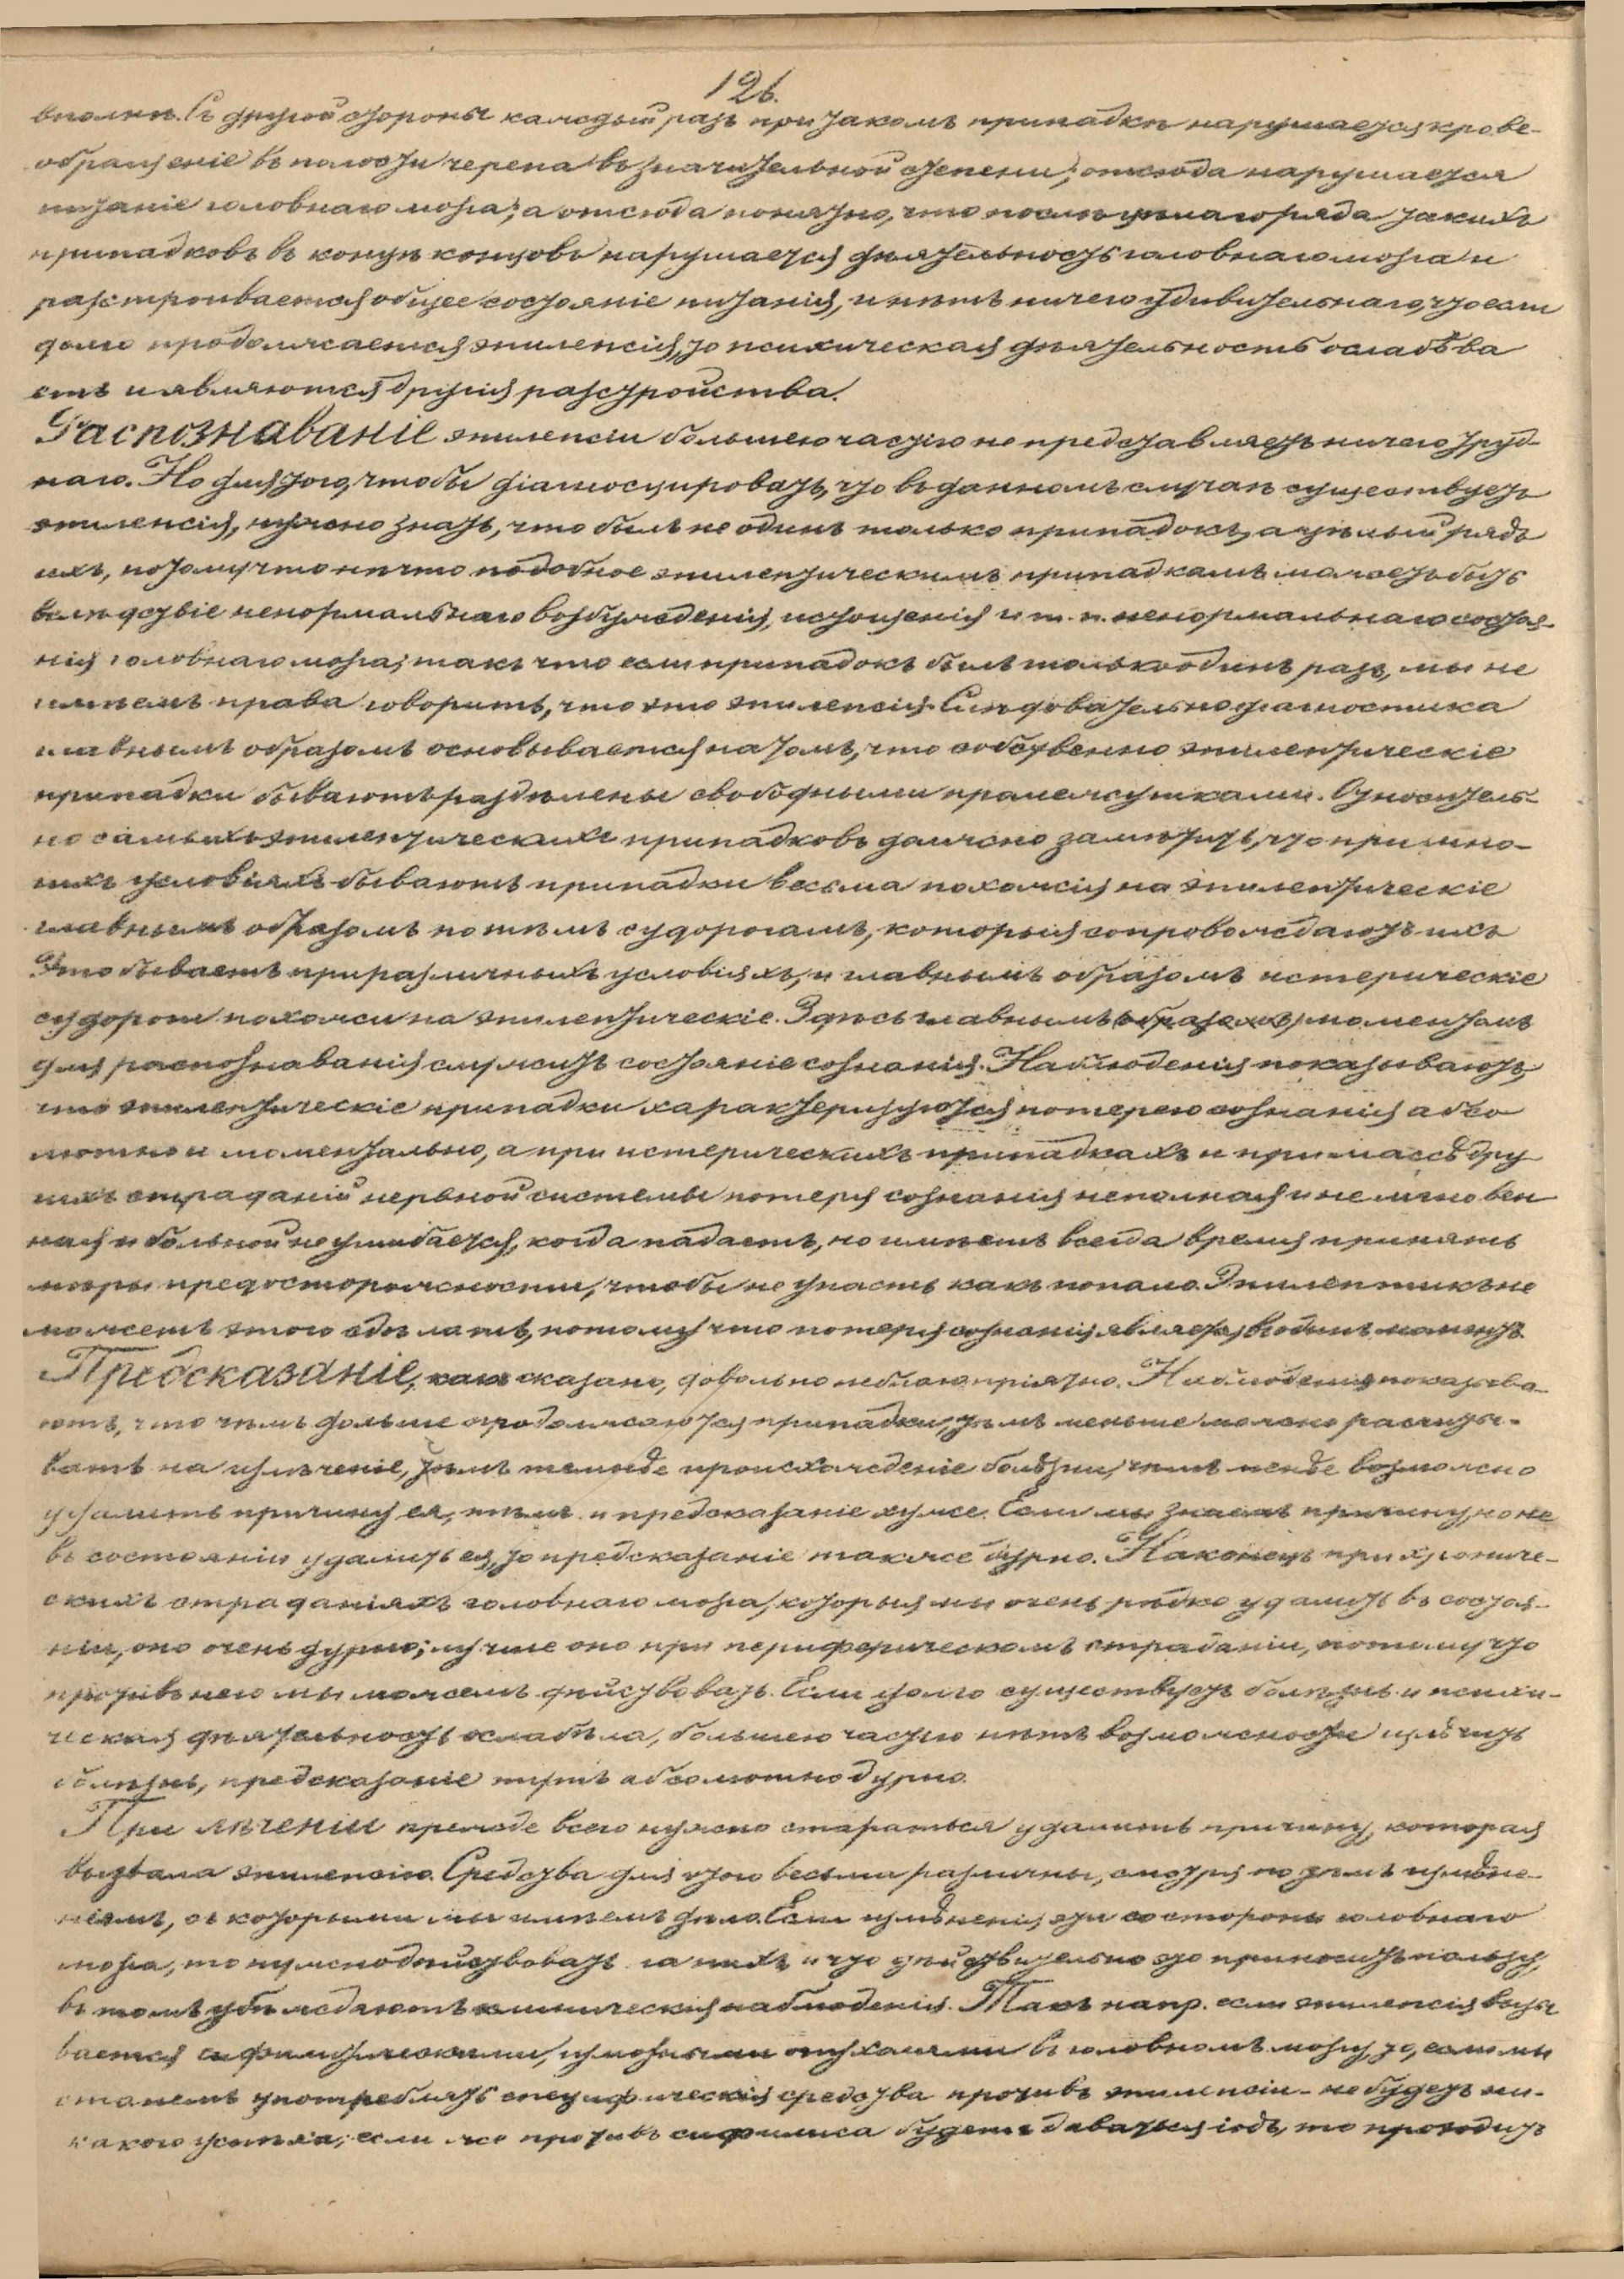 126.
вполнѣ. Съ другой стороны каждый разъ при такомъ припадкѣ нарушается крове-
обращеніе въ полости черепа въ значительной степени; отсюда нарушается
питаніе головнаго мозга; а отсюда понятно, что послѣ цѣлаго ряда такихъ
припадковъ въ концѣ концовъ нарушается дѣятельность головнаго мозга и
разстроивается общее состояніе питанія, и нѣтъ ничего удивительнаго, что если
долго продолжается эпилепсія, то психическая дѣятельность ослабѣва
етъ и являются другія разстройства.
Распознаваніе эпилепсіи большею частію не представляетъ ничего труд-
наго. Но для того, чтобы діагносцировать, что въ данномъ случаѣ существуетъ
эпилепсія, нужно знать, что былъ не одинъ только припадокъ, а цѣлый рядъ
ихъ, потому что нѣчто подобное эпилептическимъ припадкамъ можетъ быть
вслѣдствіе ненормальнаго возбужденія, истощенія и т. п. ненормальнаго состоя-
нія головнаго мозга; такъ что если припадокъ былъ только одинъ разъ, мы не
имѣемъ права говорить, что это эпилепсія. Слѣдовательно діагностика
главнымъ образомъ основывается на томъ, что собственно эпилептическіе
припадки бываютъ раздѣлены свободными промежутками. Относитель-
но самыхъ эпилептическихъ припадковъ должно замѣтить, что при мно-
гихъ условіяхъ бываютъ припадки весьма похожія на эпилептическіе
главнымъ образомъ по тѣмъ судорогамъ, которыя сопровождаютъ ихъ
Это бываетъ при различныхъ условіяхъ, и главнымъ образомъ истерическіе
судороги похожи на эпилептическіе. Здѣсь главнымъ (образомъ) моментомъ
для распознаванія служитъ состояніе сознанія. Наблюденія показываютъ,
что эпилептическіе припадки характеризуются потерею сознанія абсо
лютно и моментально, а при истерическихъ припадкахъ и при массѣ дру
гихъ страданій нервной системы потеря сознанія неполная и не мгновен
ная и больной не ушибается, когда падаетъ, но имѣетъ всегда время принять
мѣры предосторожности, чтобы не упасть какъ попало. Эпилептикъ не
можетъ этого сдѣлать, потому что потеря сознанія является въ одинъ моментъ.
Предсказаніе, какъ сказано, довольно неблагопріятно. Наблюденія показыва-
ютъ, что чѣмъ дольше продолжаются припадки, тѣмъ меньше можно расчиты-
вать на излѣченіе, чѣмъ темнѣе происхожденіе болѣзни, чѣмъ менѣе возможно
удалить причину ея, тѣмъ и предсказаніе хуже. Если мы знаемъ причину, но не
въ состояніи удалить ея, то предсказаніе также дурно. Наконецъ при хрониче-
скихъ страданіяхъ головнаго мозга, которыя мы очень рѣдко удалить въ состоя-
ніи, оно очень дурно; лучше оно при периферическомъ страданіи, потому что
противъ него мы можемъ дѣйствовать. Если долго существуетъ болѣзнь и психи-
ческая дѣятельность ослабѣла, большею частію нѣтъ возможности излѣчить
болѣзнь, предсказаніе абсолютно дурно.
При лѣченіи прежде всего нужно стараться удалить причину, которая
вызвала эпилепсію. Средства для этого весьма различны, смотря по тѣмъ измѣне-
ніямъ, съ которыми мы имѣемъ дѣло. Если измѣненія эти со стороны головнаго
мозга, то нужно дѣйствовать на нихъ и что дѣйствительно это приноситъ пользу,
въ томъ убѣждаютъ клиническія наблюденія. Такъ напр. если эпилепсія вызы
вается сифилитическими опухолями въ головномъ мозгу, то, если мы
станемъ употреблять специфическія средства противъ эпилепсіи - не будетъ ни-
какого успѣха; если же противъ сифилиса будетъ даваться іодъ, то проходитъ